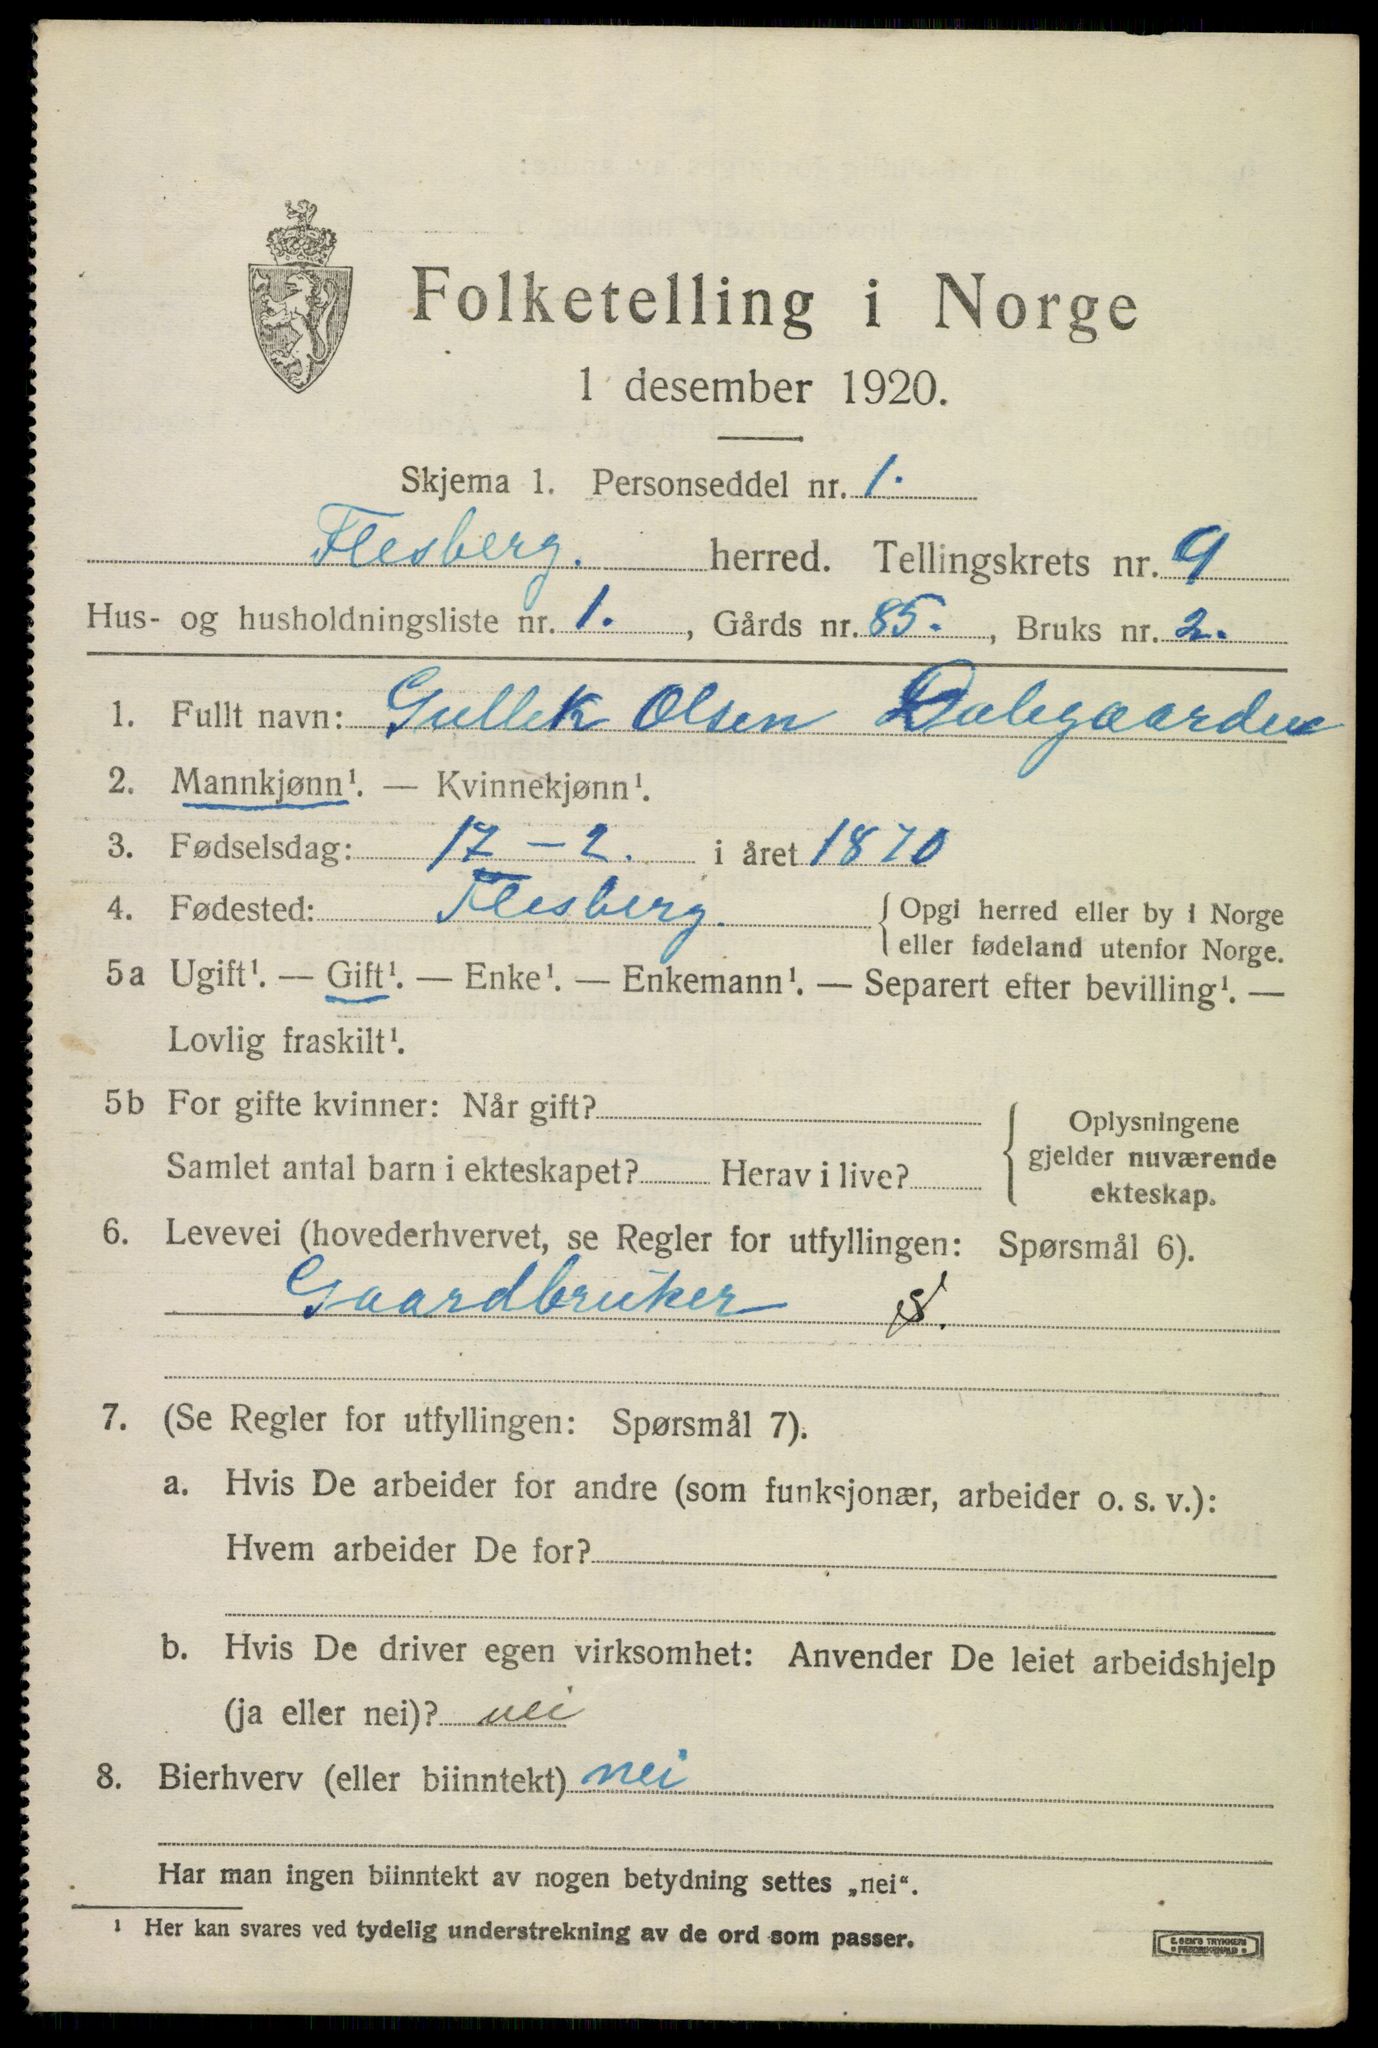 Folketelling i Norge
1 desember 1920.
Skjema 1. Personseddel nr. 1.
Flesberg. herred. Tellingskrets nr. 9
Hus- og husholdningsliste nr. 1. , Gårds nr. 85. , Bruks nr. 2.
1. Fullt navn: Gullek Olsen Dalegaarden
2. Mannkjønn¹. — Kvinnekjønn¹.
3. Fødselsdag: 17 – 2. i året 1870
4. Fødested: Flesberg. { Opgi herred eller by i Norge
eller fødeland utenfor Norge.
5a Ugift¹. — Gift¹. — Enke¹. — Enkemann¹. — Separert efter bevilling¹. —
Lovlig fraskilt¹.
5b For gifte kvinner: Når gift?
Samlet antal barn i ekteskapet? Herav i live?
{ Oplysningene
gjelder nuværende
ekteskap.
6. Levevei (hovederhvervet, se Regler for utfyllingen: Spørsmål 6).
Gaardbruker S.
7. (Se Regler for utfyllingen: Spørsmål 7).
a. Hvis De arbeider for andre (som funksjonær, arbeider o. s. v.):
Hvem arbeider De for?
b. Hvis De driver egen virksomhet: Anvender De leiet arbeidshjelp
(ja eller nei)? nei
8. Bierhverv (eller biinntekt) nei
Har man ingen biinntekt av nogen betydning settes „nei“.
¹ Her kan svares ved tydelig understrekning av de ord som passer.
E. SEM'S TRYKKERI
FREDRIKSHALD